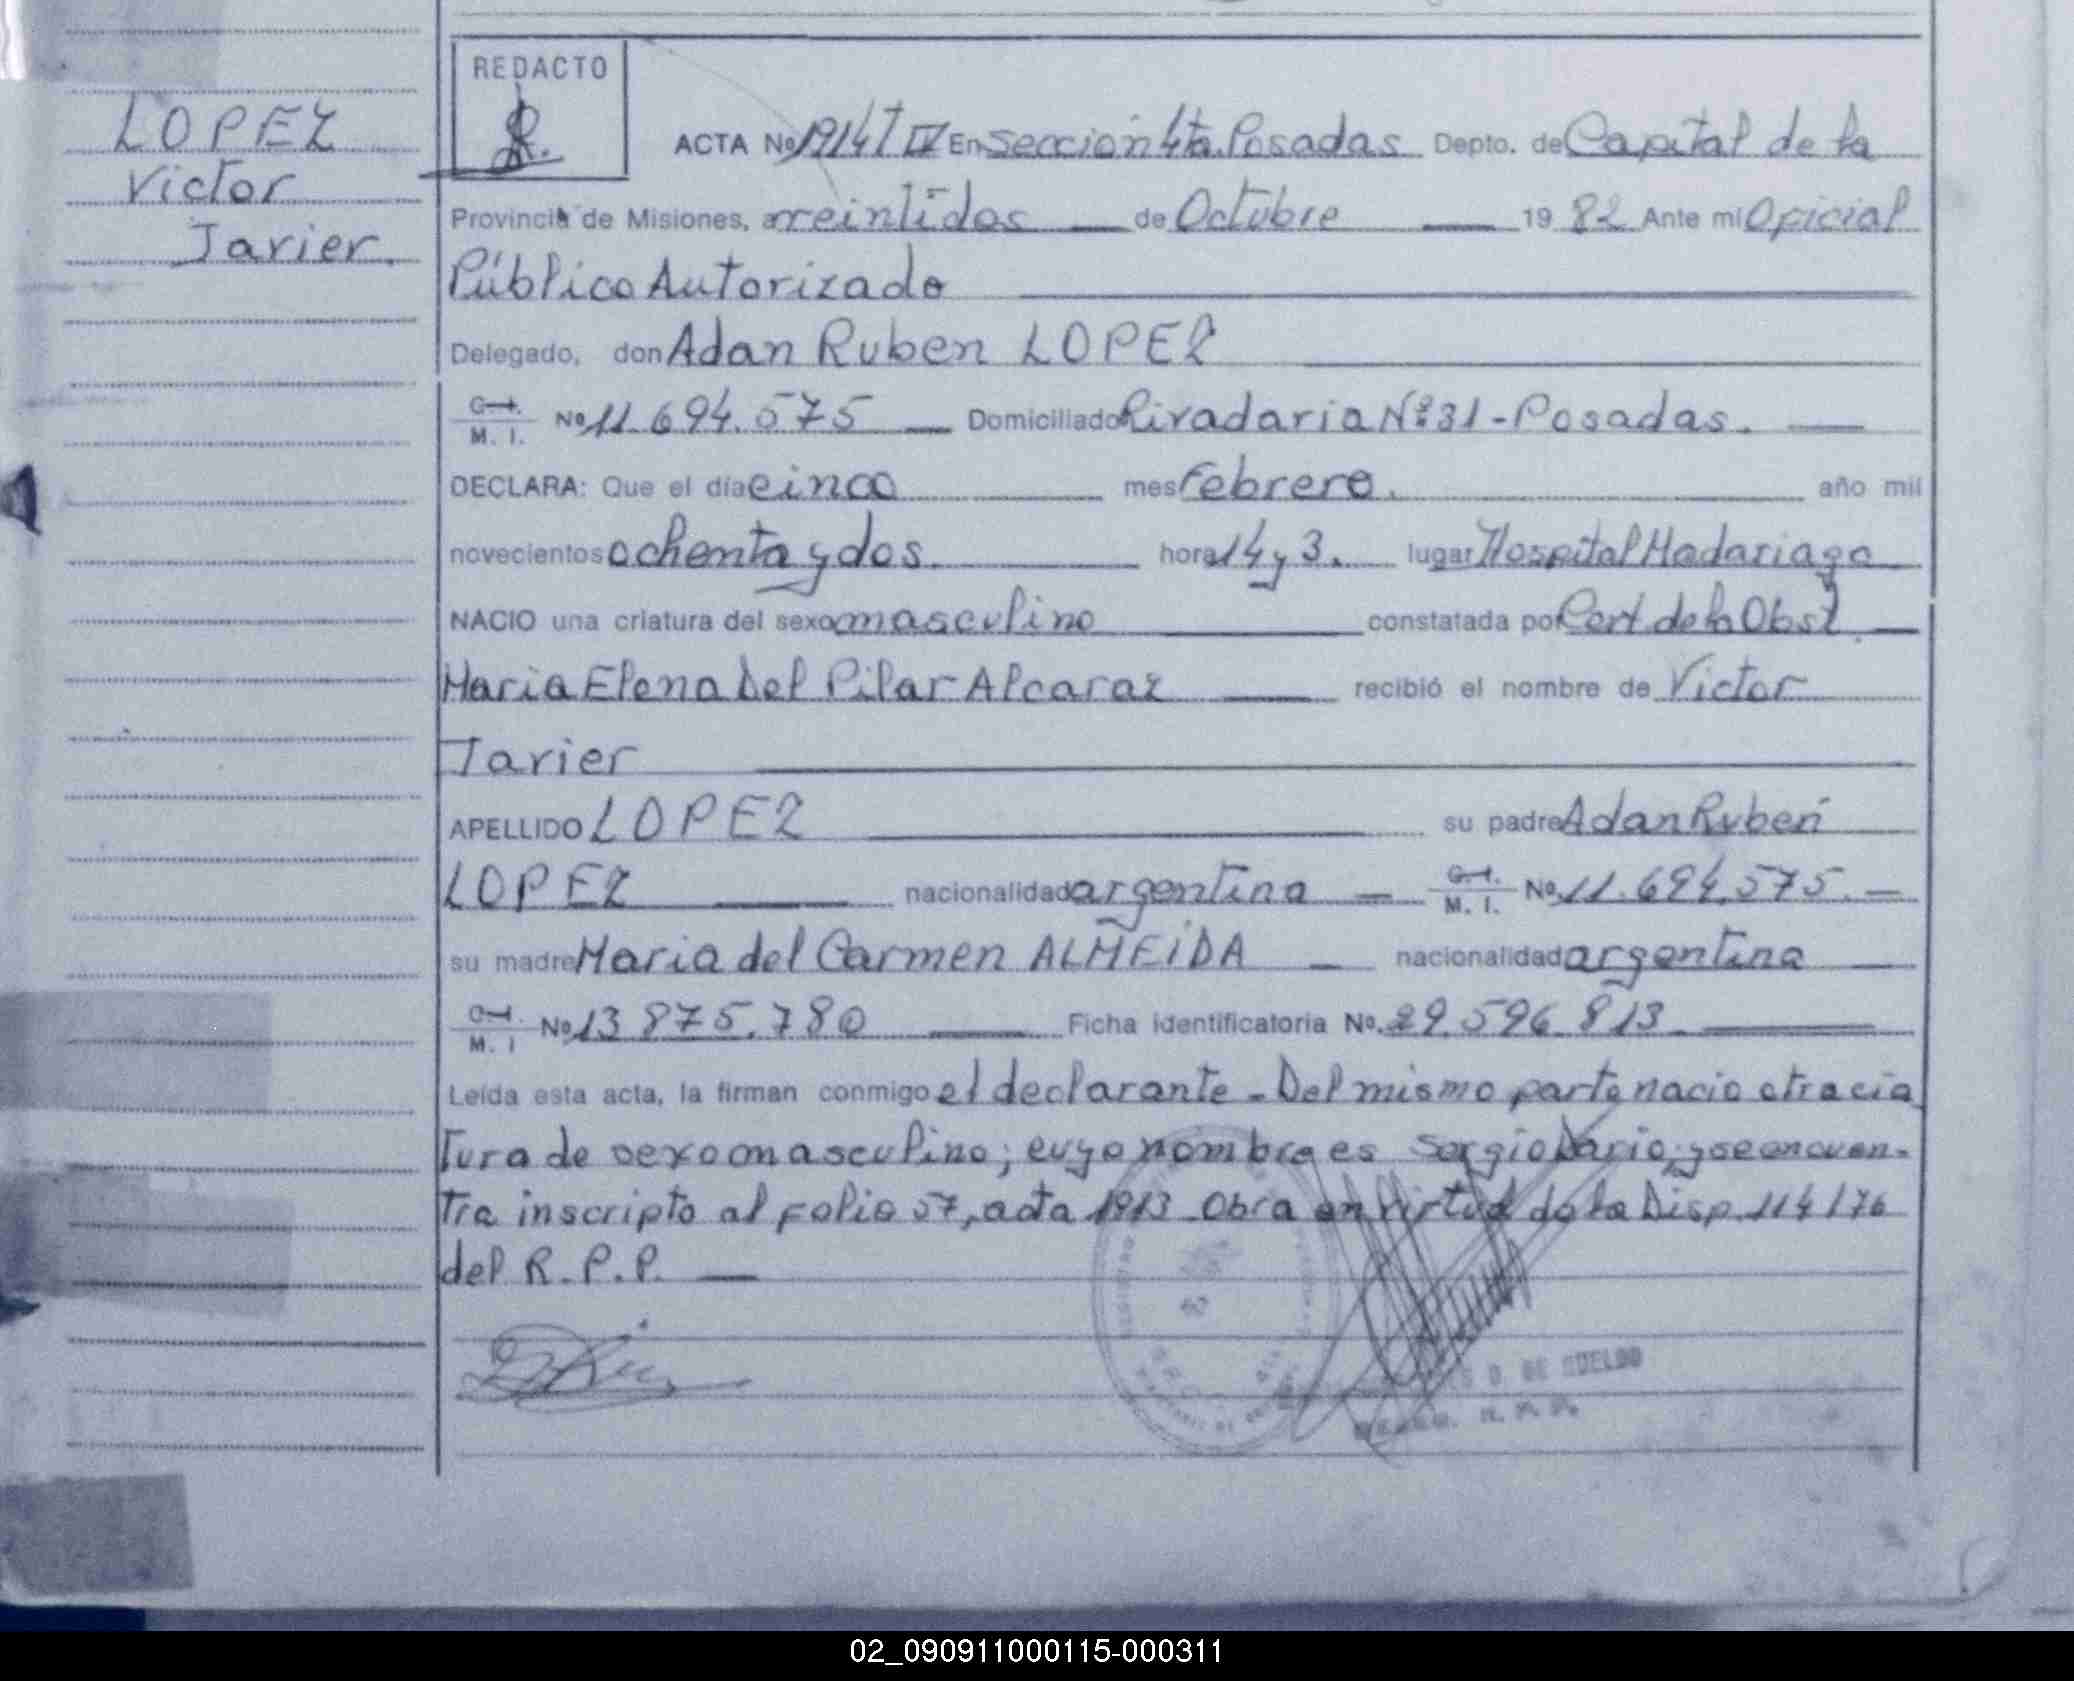 REDACTO
LOPEZ
Victor
Javier.
ACTA No 1914 T IV En Sección 4ta. Posadas Depto. de Capital de la
Provincia de Misiones, a veintidos de Octubre 1982 Ante mi Oficial
Público Autorizado
Delegado, don Adan Ruben LOPEZ
C.I. M. I. No 11.694.575 Domiciliado Rivadavia Nº 31 - Posadas.
DECLARA: Que el día cinco mes Febrero. año mil
novecientos ochenta y dos. hora 14 y 3. lugar Hospital Madariaga
NACIO una criatura del sexo masculino constatada por Cert. de la Obst.
Maria Elena Del Pilar Alcaraz recibió el nombre de Victor
Javier
APELLIDO LOPEZ su padre Adan Ruben
LOPEZ nacionalidad argentina C.I. M. I. No. 11.694.575.
su madre Maria del Carmen ALMEIDA nacionalidad argentina
C.I. M. I No 13 875.780 Ficha identificatoria No. 29.596.813
Leída esta acta, la firman conmigo el declarante - Del mismo parto nacio otra cria
tura de sexo masculino; cuyo nombre es Sergio Dario, y se encuen-
tra inscripto al folio 57, acta 1913 Obra en virtud de la Disp. 114/76
del R. P. P.
D. DE SUELDO
02_090911000115-000311